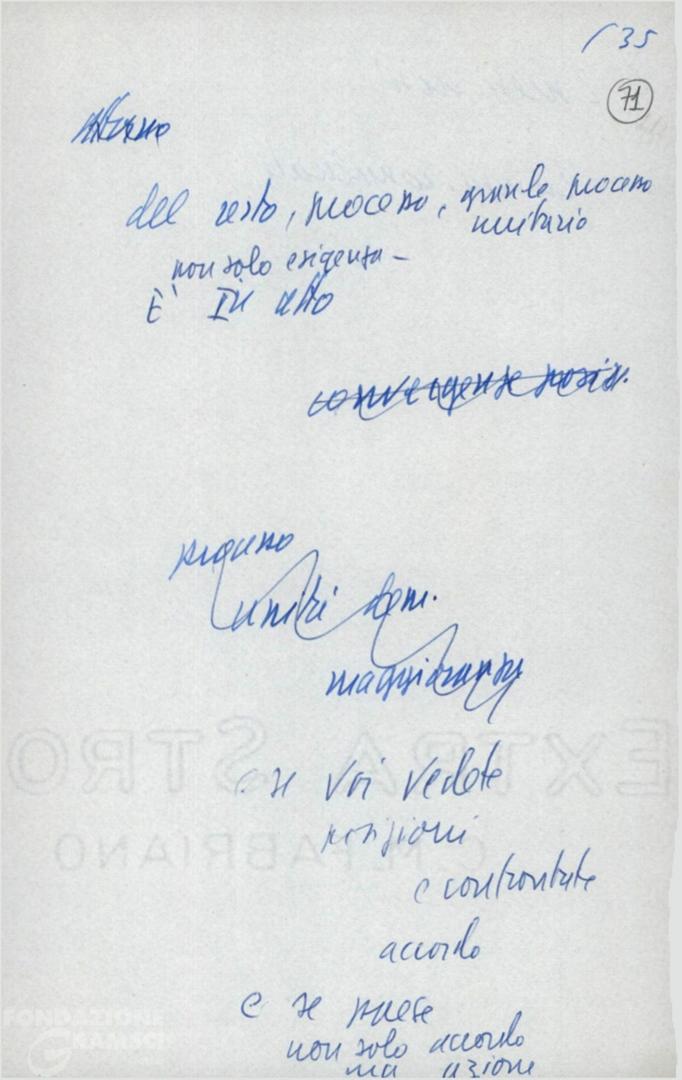 / 35
71
del resto, processo, grande processo
unitario
non solo esigenza -
È IN atto
convergenze posiz.
unità dem.
maggioranza
e se voi vedete
posizioni
e confrontate
accordo
e se paese
non solo accordo
ma azione
EXTRA STRO
C.M.FABRIANO
FONDAZIONE
GRAMSCI